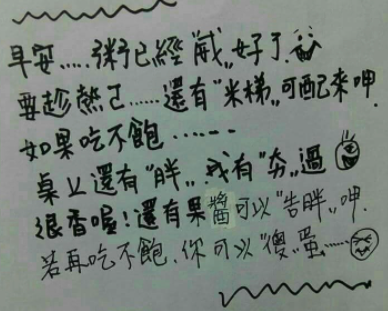 早安.....粥已經"減"好了.
要趁熱ㄛ......還有"米梯"可配來呷.
如果吃不飽......
桌上還有"胖"我有"夯"過
很香喔!還有果醬可以"告胖"呷.
若再吃不飽.你可以"傻"蛋......